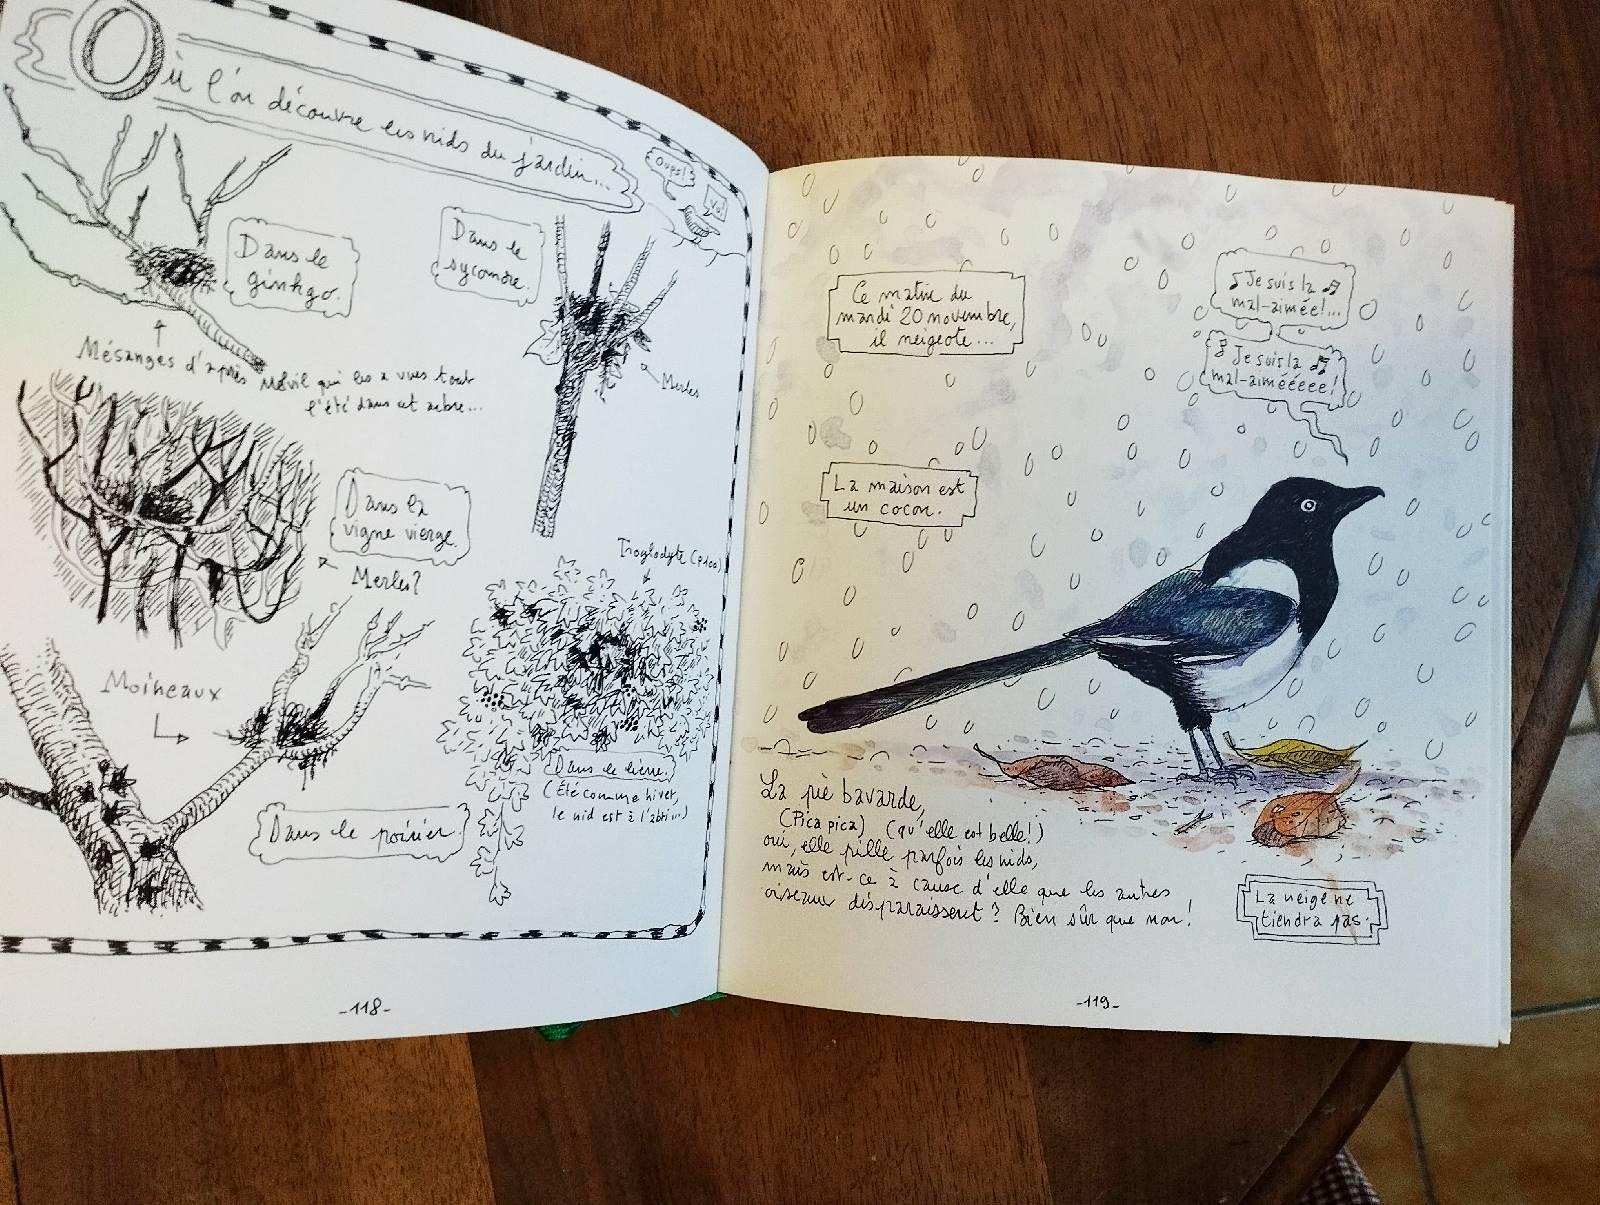 Où l'on découvre les nids du jardin...
Oups!
Vo!
Dans le
ginkgo.
Dans le
sycomore.
Mésanges d'après
qui les a vues tout
l'été dans cet arbre...
Merles
Dans la
vigne vierge.
Merles?
Troglodyte (p100)
Moineaux
Dans le lierre.
(Été comme hiver,
le nid est à l'abri...)
Dans le poirier.
-118-
Ce matin du
mardi 20 novembre,
il neigeote...
♪ Je suis la ♫
mal-aimée!...
Je suis la ♫
mal-aiméééee!
La maison est
un cocon.
La pie bavarde,
(Pica pica) (qu'elle est belle!)
oui, elle pille parfois les nids,
mais est-ce à cause d'elle que les autres
oiseaux disparaissent? Bien sûr que non!
La neige ne
tiendra pas.
-119-